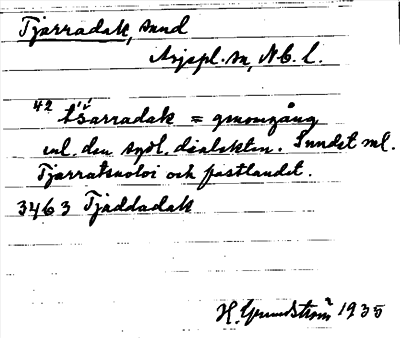 Tjarradak, sund
Arjepl. sn, Nb. l.
42 tsarradak = genomgång
enl. den sydl. dialekten. Sundet ml.
Tjarratsuoloi och fastlandet.
3463 Tjaddadak
H. Grundström 1935